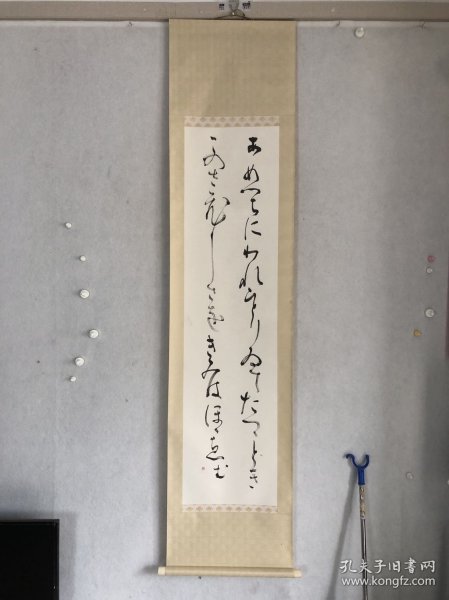 あめつちにわれひとりゐてたつことき
このさひしさをきみはほゝゑむ
孔夫子旧书网
www.kongfz.com